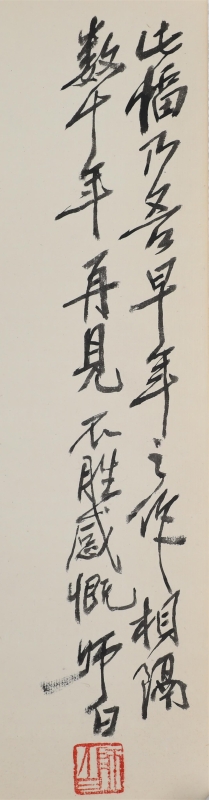 此幅乃吾早年之作相隔
数十年再見不胜感慨师白
师白